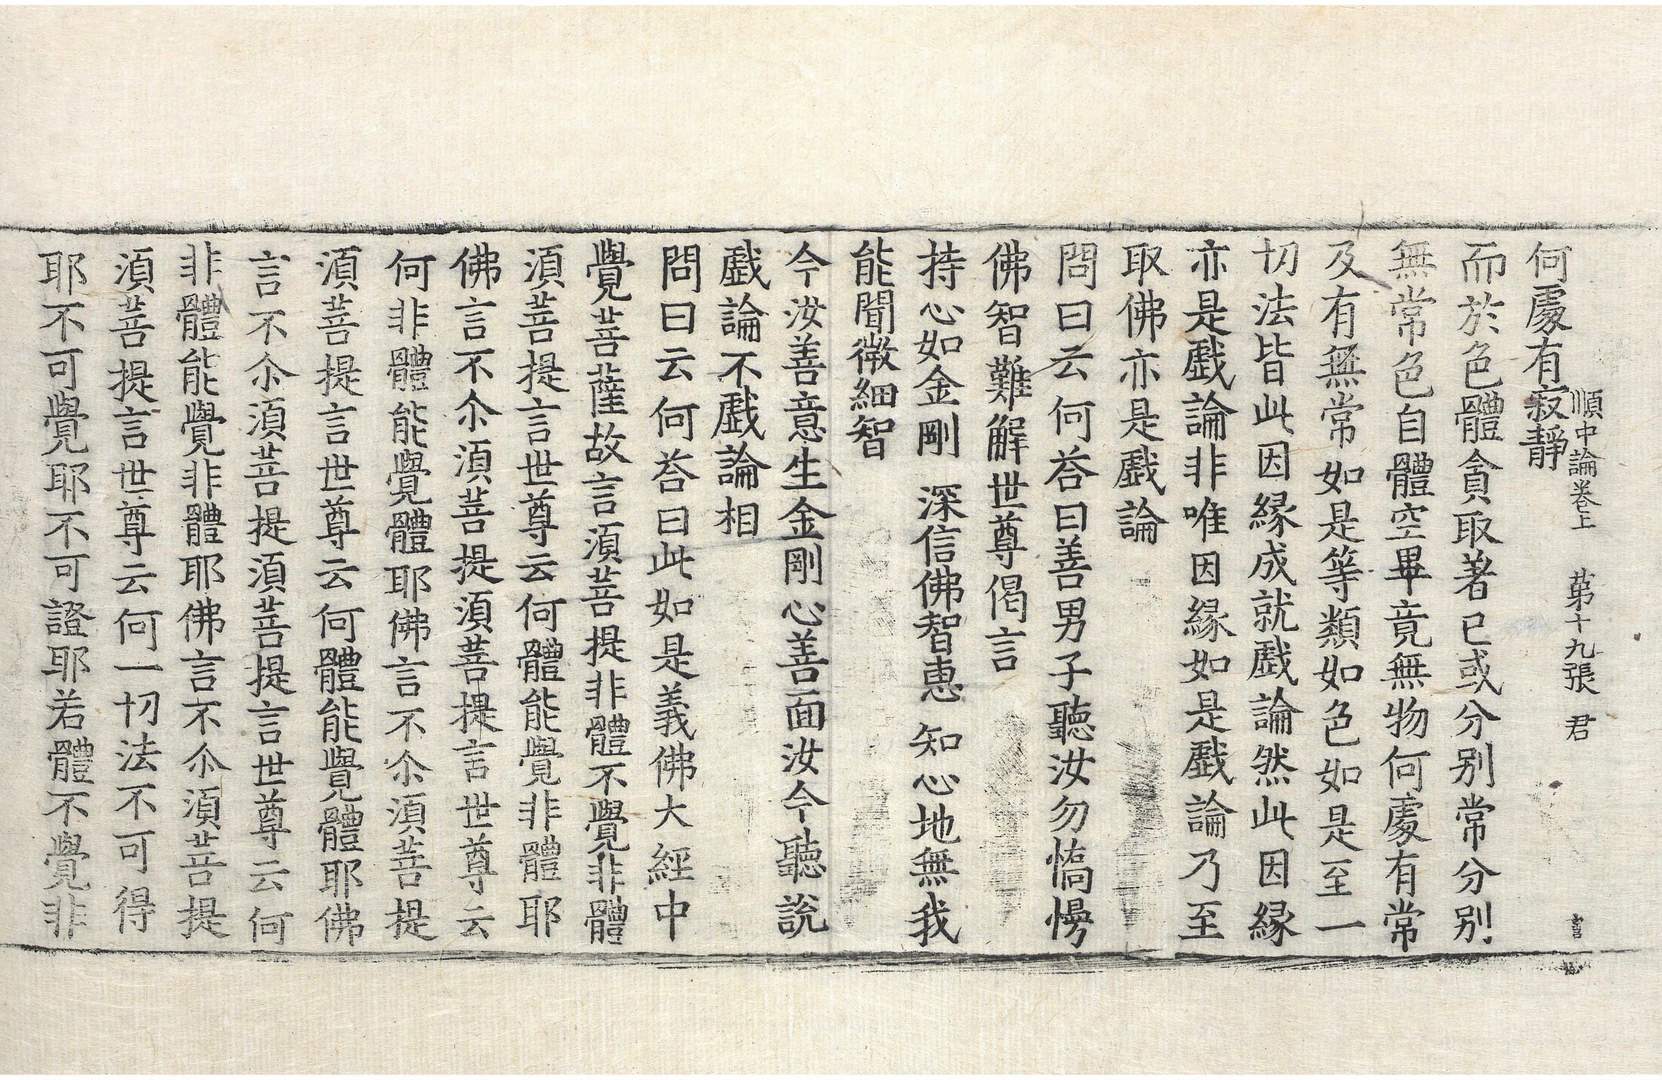 順中論卷上　第十九張　君
何處有寂靜
而於色體貪取著已或分別常分別
無常色自體空畢竟無物何處有常
及有無常如是等類如色如是至一
切法皆此因緣成就戲論然此因緣
亦是戲論非唯因緣如是戲論乃至
取佛亦是戲論
問曰云何荅曰善男子聽汝勿憍慢
佛智難解世尊偈言
持心如金剛　深信佛智惠　知心地無我
能聞微細智
今汝善意生金剛心善面汝今聽說
戲論不戲論相
問曰云何荅曰此如是義佛大經中
覺菩薩故言湏菩提非體不覺非體
湏菩提言世尊云何體能覺非體耶
佛言不尒湏菩提湏菩提言世尊云
何非體能覺體耶佛言不尒湏菩提
湏菩提言世尊云何體能覺體耶佛
言不尒湏菩提湏菩提言世尊云何
非體能覺非體耶佛言不尒湏菩提
湏菩提言世尊云何一切法不可得
耶不可覺耶不可證耶若體不覺非